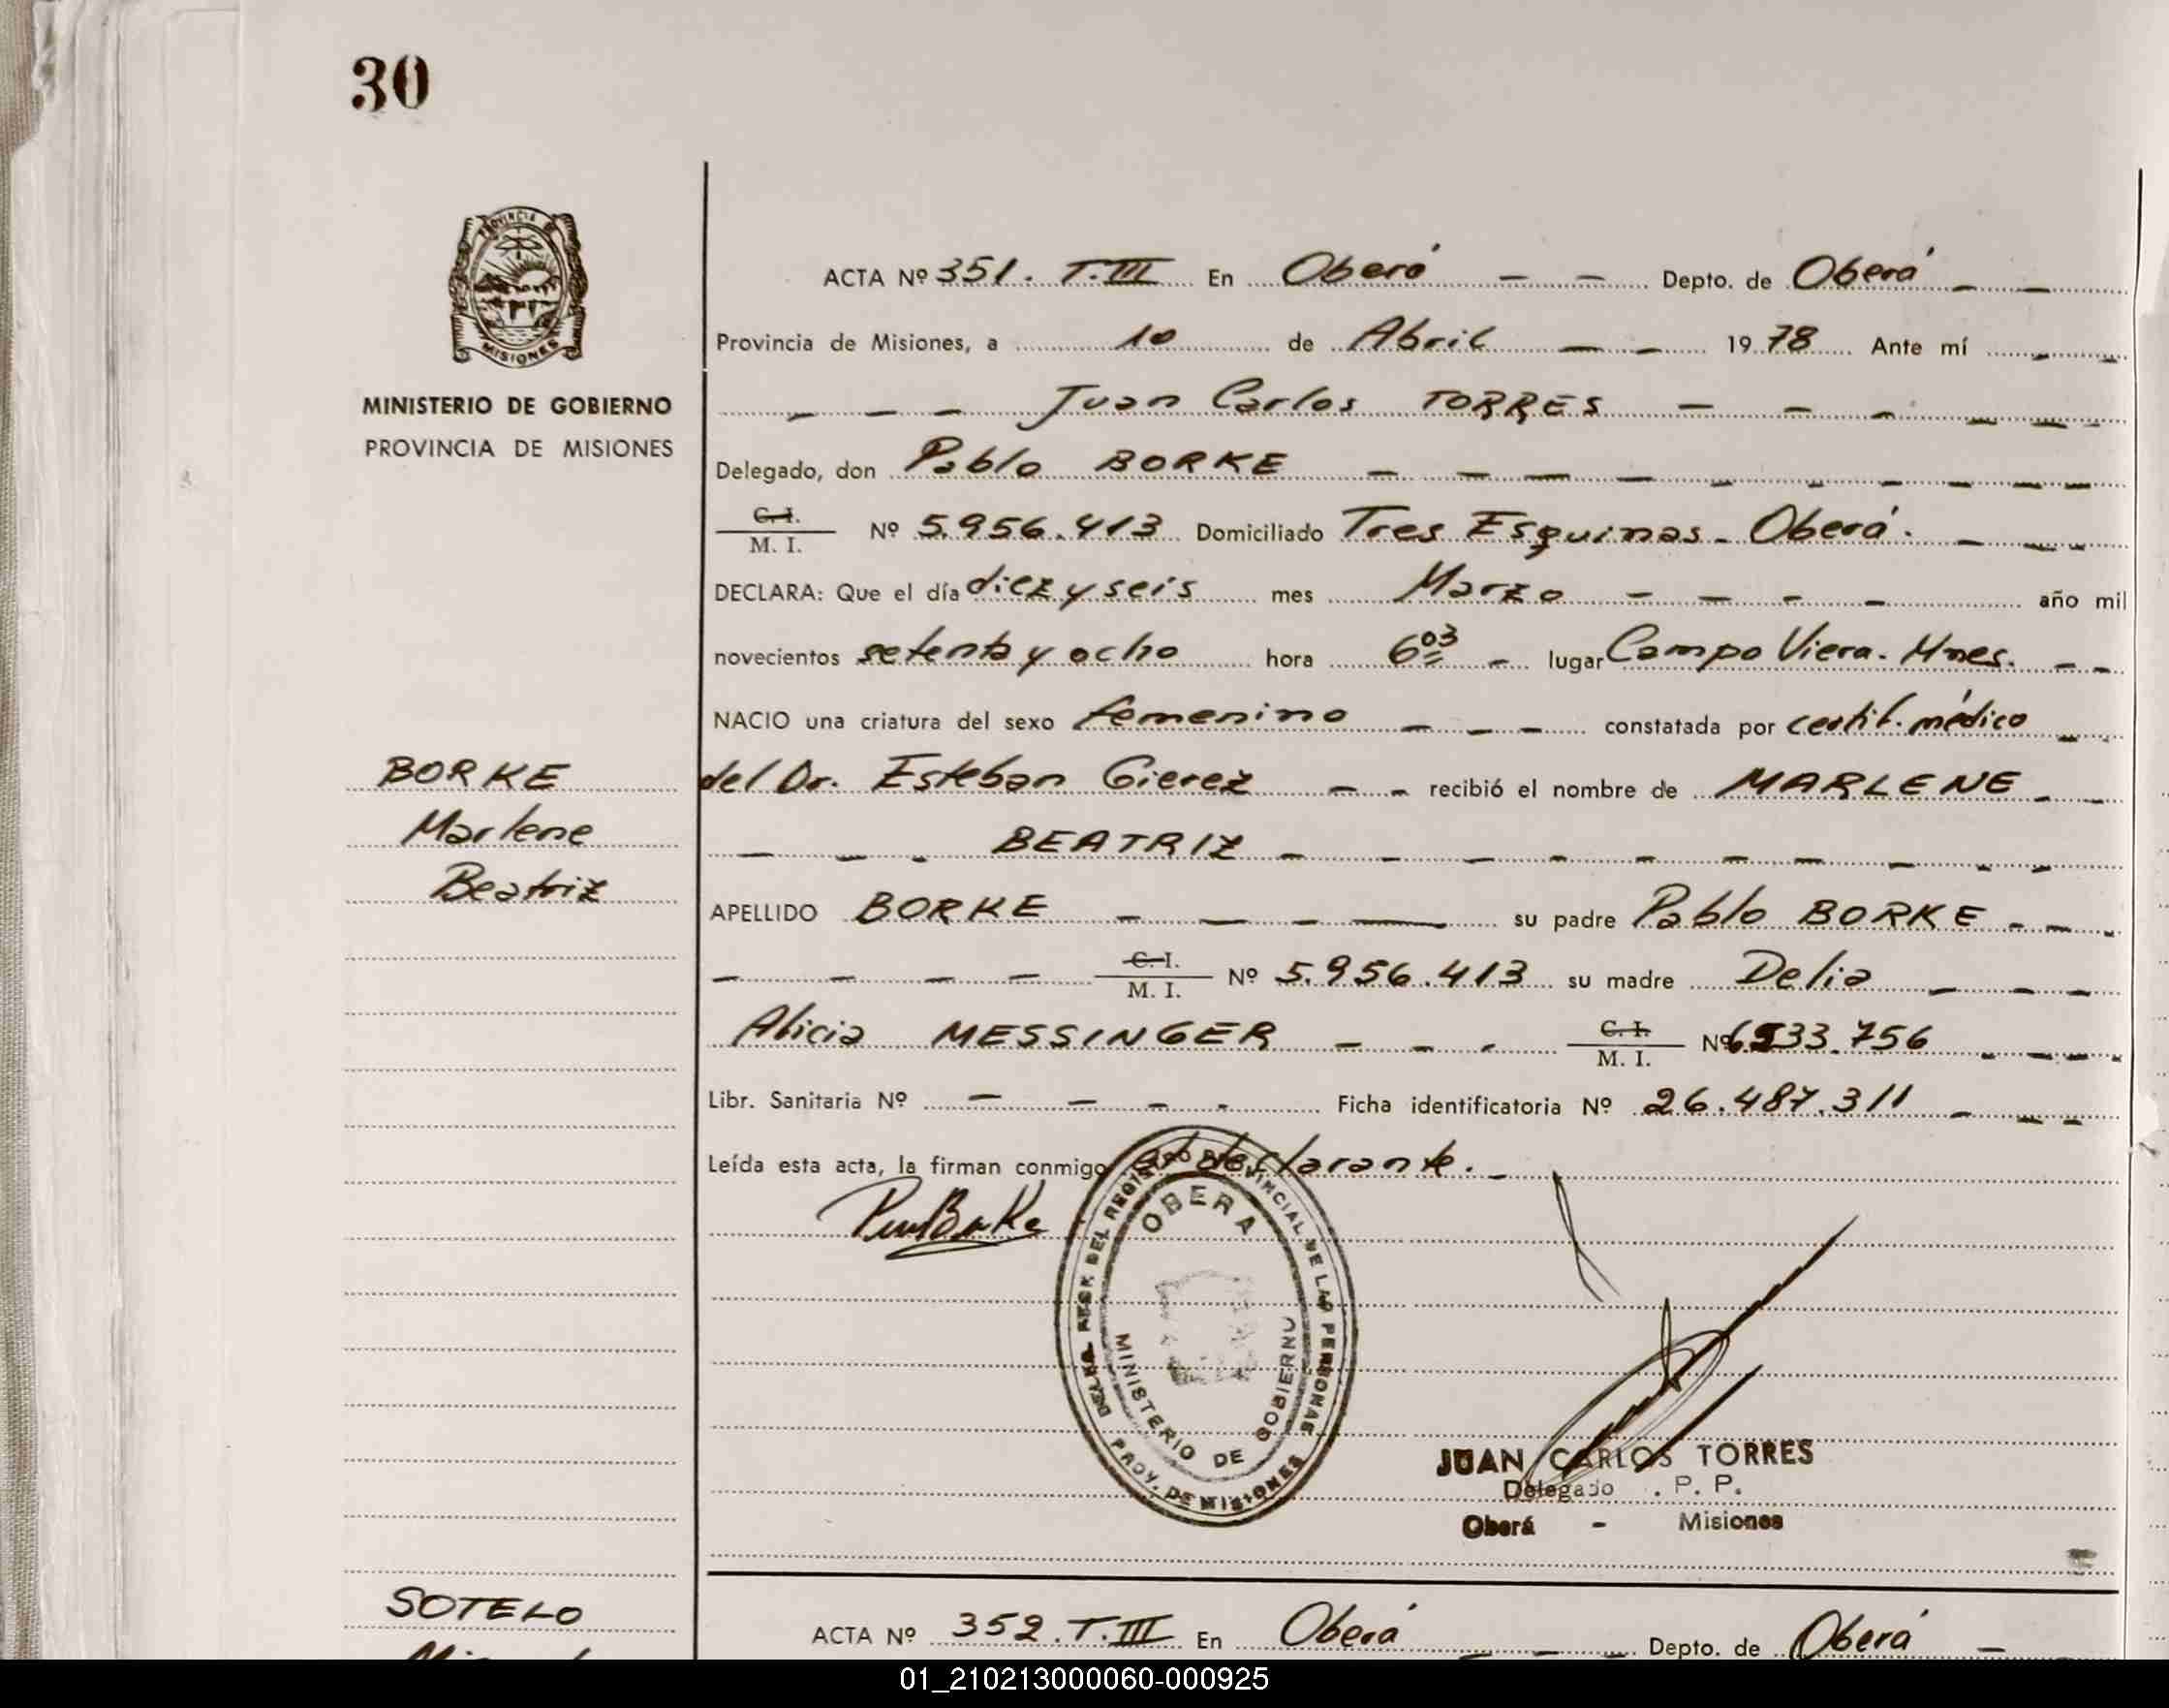 30
PROVINCIA
MISIONES
MINISTERIO DE GOBIERNO
PROVINCIA DE MISIONES
ACTA Nº 351. T. III En Oberá Depto. de Oberá
Provincia de Misiones, a 10 de Abril 1978 Ante mí
Juan Carlos TORRES
Delegado, don Pablo BORKE
C. I.
M. I. Nº 5.956.413 Domiciliado Tres Esquinas - Oberá.
DECLARA: Que el día diez y seis mes Marzo año mil
novecientos setenta y ocho hora 6 03 lugar Campo Viera. Mnes.
NACIO una criatura del sexo femenino constatada por certif. médico
BORKE
del Dr. Esteban Gierez recibió el nombre de MARLENE
Marlene
BEATRIZ
Beatriz
APELLIDO BORKE su padre Pablo BORKE
C. I.
M. I. Nº 5.956.413 su madre Delia
Alicia MESSINGER C. I.
M. I. Nº 33.756
Libr. Sanitaria Nº Ficha identificatoria Nº 26.487.311
Leída esta acta, la firman conmigo el declarante.
DEL REGISTRO PROVINCIAL DE LAS PERSONAS
OBERA
MINISTERIO DE GOBIERNO
PROV. DE MISIONES
JUAN CARLOS TORRES
Delegado . P. P.
Oberá - Misiones
SOTELO
ACTA Nº 352. T. III En Oberá Depto. de Oberá
01_210213000060-000925